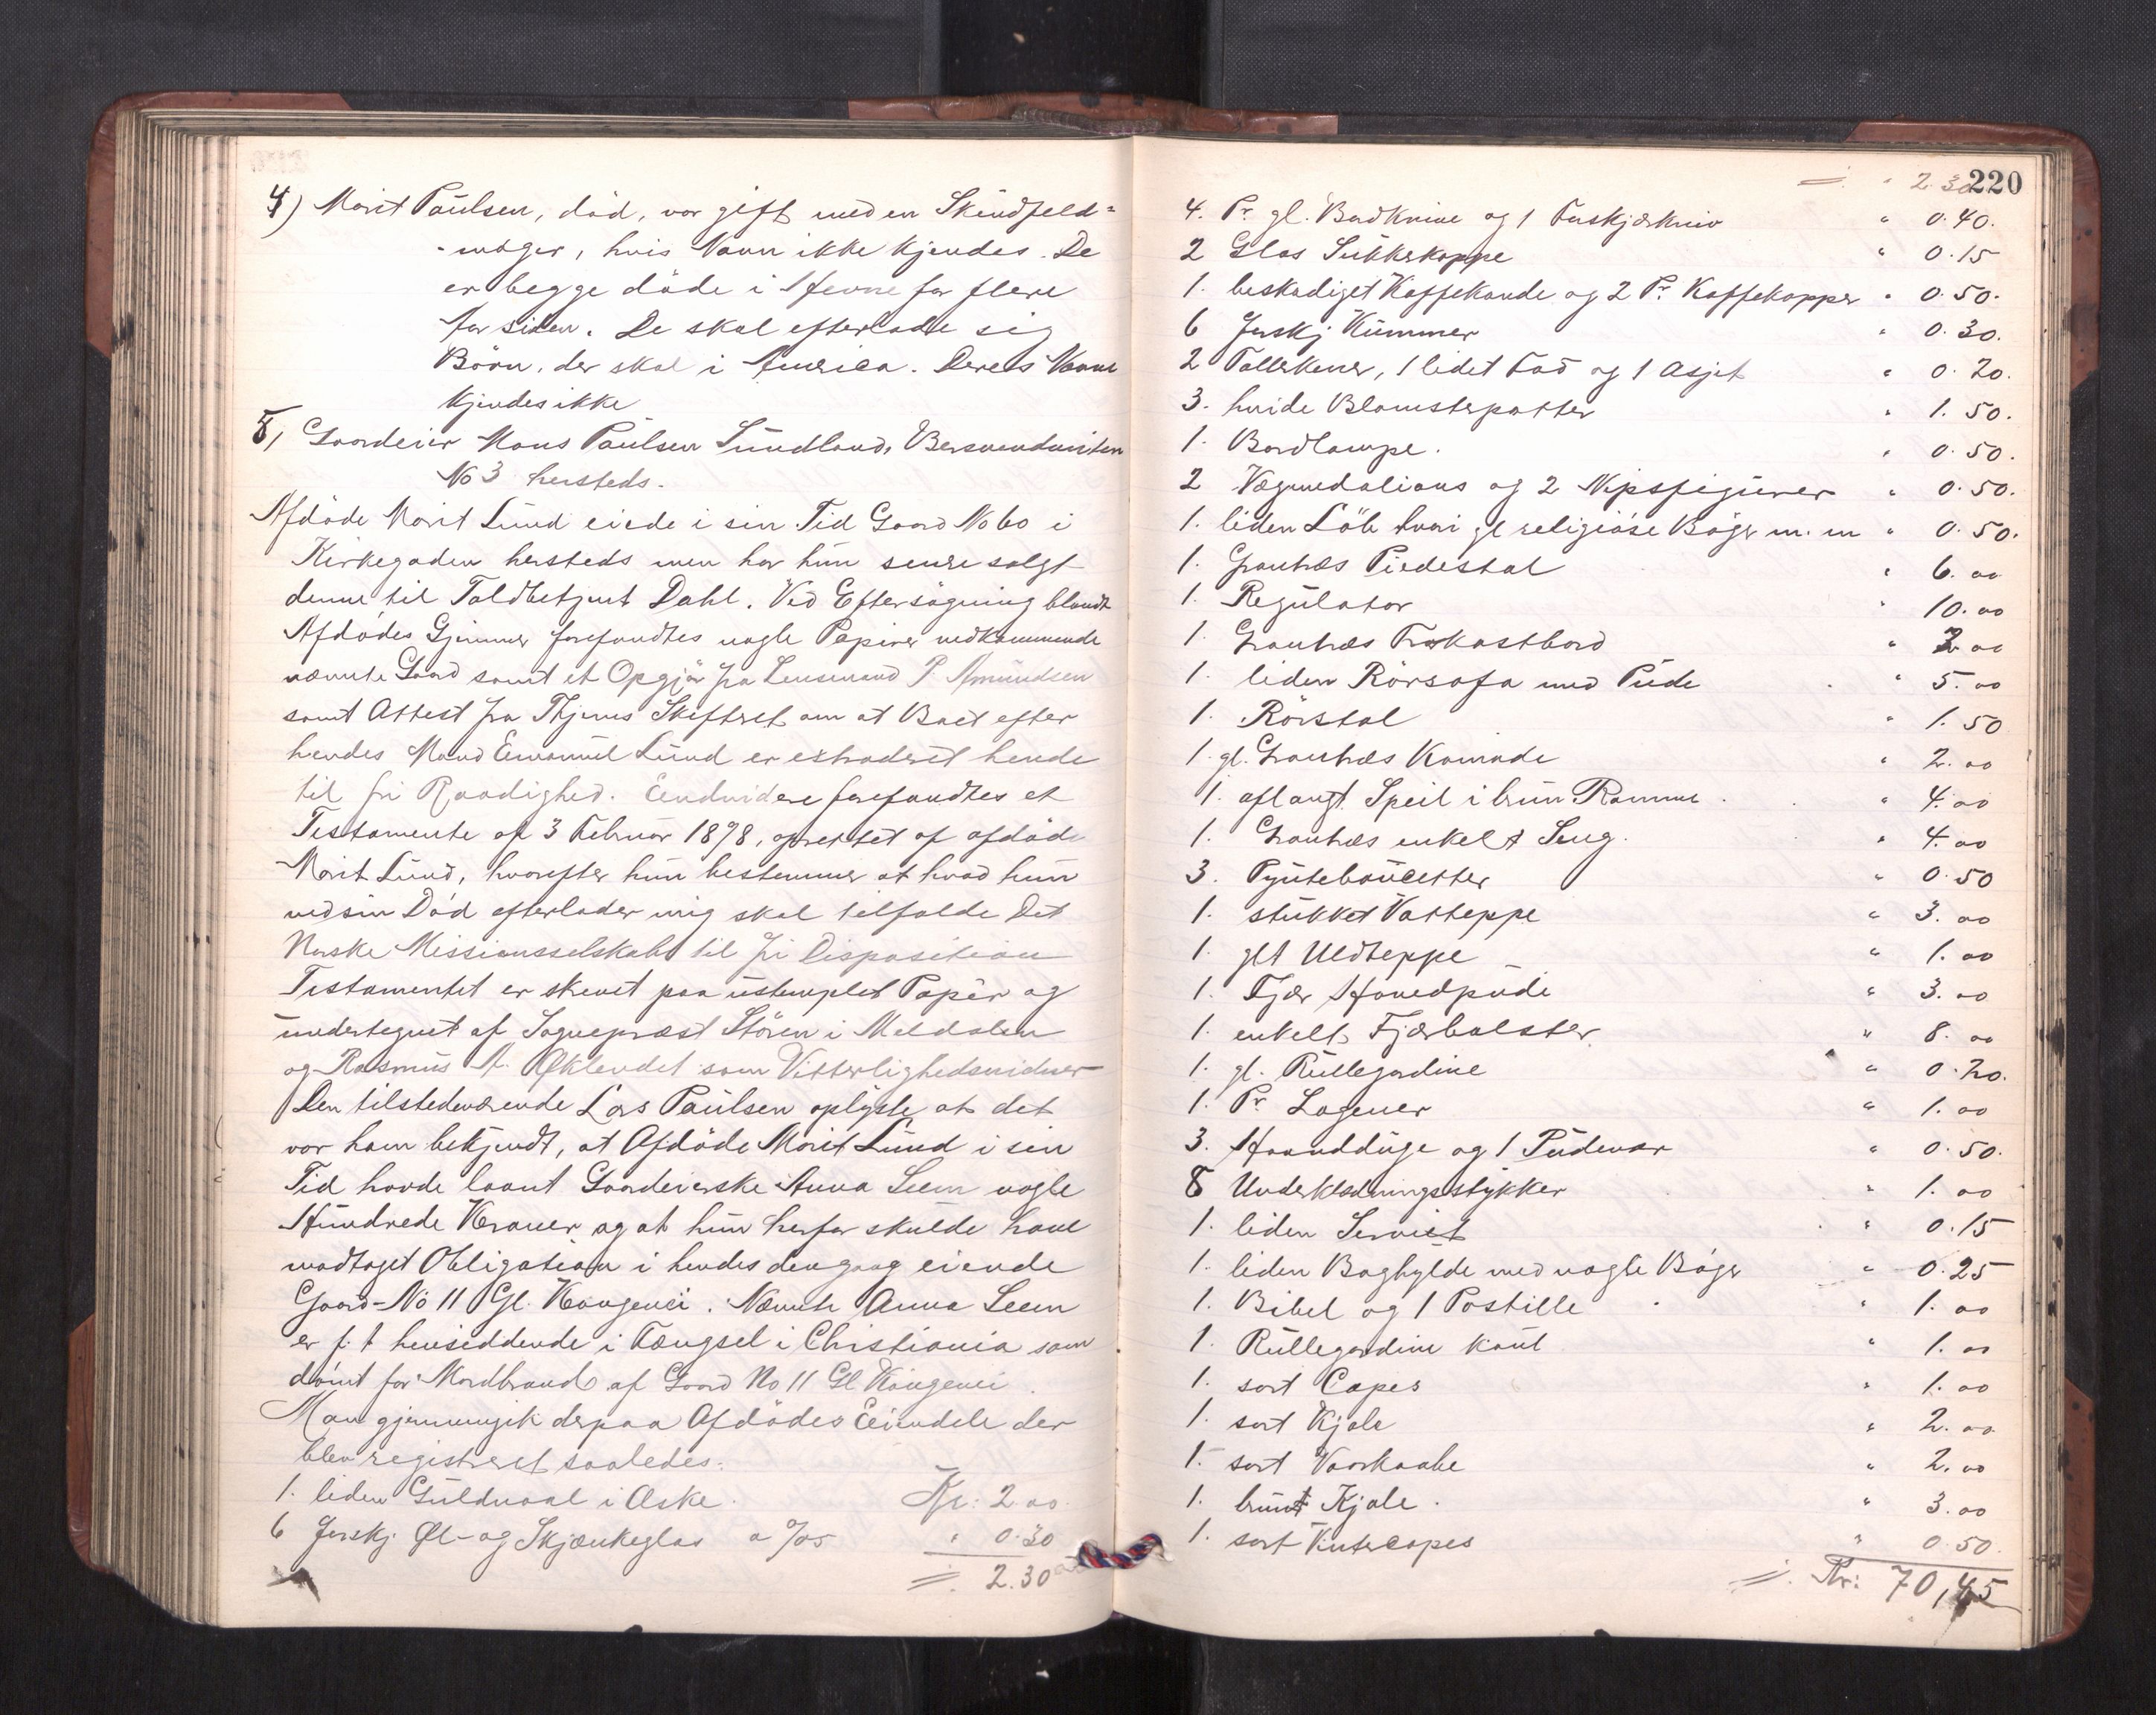 4) Marit Paulsen, död, var gift med en Skindfeld=
-mager, hvis Navn ikke kjendes. De
er begge döde i Hevne for flere
Aar siden. De skal efterlade sig
Börn, der skal i America. Deres Navne
kjendes ikke
5, Gaardeier Mons Paulsen Sundland,
No 3 hersteds.
Afdöde Marit Lund eiede i sin Tid Gaard No 60 i
Kirkegaden hersteds men har hun senere solgt
denne til Toldbetjent Dahl. Ved Eftersögning blandt
Afdödes Gjemmer forefandtes nogle Papirer vedkommende
nævnte Gaard samt et Opgjör fra Lensmand P. Amundsen
samt Attest fra Skifteret om at Boet efter
hendes Mand Emanuel Lund er extraderet hende
til fri Raadighed. Endvidere forefandtes et
Testamente af 3 Februar 1898, oprettet af afdöde
Marit Lund, hvorefter hun bestemmer at hvad hun
ved sin Död efterlader sig skal tilfalde Det
Norske Missionsselskab til fri Disposition
Testamentet er skrevet paa ustemplet Papir og
undertegnet af Sognepræst Stören i Meldalen
og Rasmus A. Øklandet som Vitterlighedsvidner
Den tilstedeværende Lars Paulsen oplyste, at det
var ham bekjendt, at Afdöde Marit Lund i sin
Tid havde laant Gaardeierske Anna Leem nogle
Hundrede Kroner, og at hun herfor skulde have
modtaget Obligation i hendes dengang eiende
Gaard No 11 Gl. Kongevei. Nævnte Anna Leem
er f. t. hensiddende i Fængsel i Christiania som
dömt for Mordbrand af Gaard No 11 Gl Kongevei.
Man gjennemgik derpaa Afdödes Eiendele der
blev registreret saaledes:
1. liden Guldnaal i Æske. Kr: 2.00.
6 forskj. Øl- og Skjænkeglas a 0/05 " 0.30
= 2.30
220
= " 2.30
4. Pr. gl. Bordknive og 1 Forskjærkniv " 0.40.
2 Glas Sukkerkoppe " 0.15
1. beskadiget Kaffekande og 2 Pr. Kaffekopper " 0.50.
6 forskj Kummer " 0.30.
2 Tallekener, 1 lidet Fad og 1 Asjet " 0.20.
3. hvide Blomsterpotter " 1.50.
1. Bordlampe. " 0.50.
2 Vægmedalions og 2 Nipsfigurer " 0.50.
1. liden Löb hvori gl religiöse Böger m. m " 0.50.
1. Grantræs Piedestal " 6.00
1. Regulator " 10.00
1. Grantræs Frokostbord " 3.00
1. liden Rörsofa med Pude " 5.00
1. Rörstol " 1.50
1. gl. Grantræs Komode " 2.00
1. aflangt Speil i brun Ramme. " 4.00
1. Grantræs enkelt Seng. " 4.00
3. Pyntebouketter " 0.50
1. stukket Vatteppe " 3.00
1. glt Uldteppe " 1.00
1. Fjær Hovedpude " 3.00
1. enkelt Fjærbolster " 8.00
1. gl. Rullegardine " 0.20.
1. Pr Lagener " 1.00
3. Haandduge og 1 Pudevar " 0.50.
8 Underklædningsstykker " 1.00
1. liden Serviet " 0.15
1. liden Boghylde med nogle Böger " 0.25
1. Bibel og 1 Postille " 1.00
1. Rullegardine " 1.00
1. sort Capes " 1.00
1. sort Kjole " 2.00
1. sort Vaarkaabe " 2.00
1. brunt Kjole. " 3.00
1. sort Vintercapes " 0.50.
= Kr: 70,45